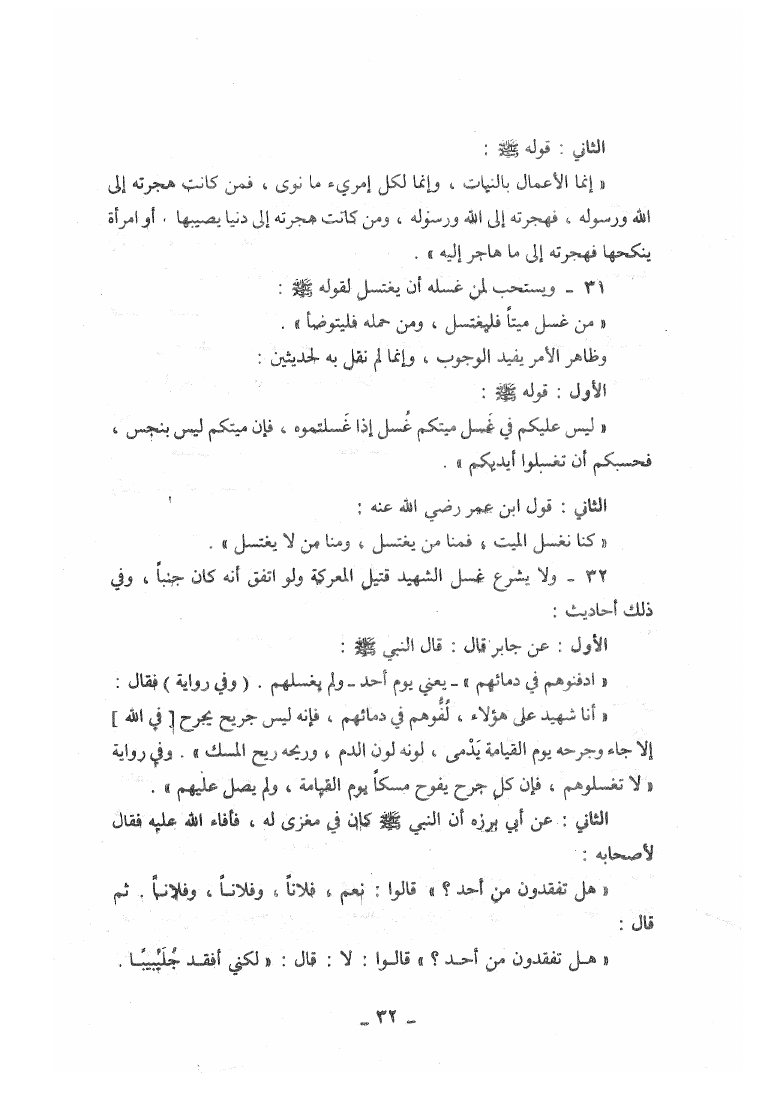 الثاني : قوله ﷺ :
« إنما الأعمال بالنيات ، وإنما لكل إمريء ما نوى ، فمن كانت هجرته إلى
الله ورسوله ، فهجرته إلى الله ورسوله ، ومن كانت هجرته إلى دنيا يصيبها . أو امرأة
ينكحها فهجرته إلى ما هاجر إليه » .
٣١ ـ ويستحب لمن غسله أن يغتسل لقوله ﷺ :
« من غسل ميتاً فليغتسل ، ومن حمله فليتوضأ » .
وظاهر الأمر يفيد الوجوب ، وإنما لم نقل به لحديثين :
الأول : قوله ﷺ :
« ليس عليكم في غَسل ميتكم غُسل إذا غَسلتموه ، فإن ميتكم ليس بنجس ،
فحسبكم أن تغسلوا أيديكم » .
الثاني : قول ابن عمر رضي الله عنه :
« كنا نغسل الميت ، فمنا من يغتسل ، ومنا من لا يغتسل » .
٣٢ ـ ولا يشرع غسل الشهيد قتيل المعركة ولو اتفق أنه كان جنباً ، وفي
ذلك أحاديث :
الأول : عن جابر قال : قال النبي ﷺ :
« ادفنوهم في دمائهم » ـ يعني يوم أحد ـ ولم يغسلهم . ( وفي رواية ) فقال :
« أنا شهيد على هؤلاء ، لُفُّوهم في دمائهم ، فإنه ليس جريح يجرح [ في الله ]
إلا جاء وجرحه يوم القيامة يَدْمى ، لونه لون الدم ، وريحه ريح المسك » . وفي رواية
« لا تغسلوهم ، فإن كل جرح يفوح مسكاً يوم القيامة ، ولم يصل عليهم » .
الثاني : عن أبي برزه أن النبي ﷺ كان في مغزى له ، فأفاء الله عليه فقال
لأصحابه :
« هل تفقدون من أحد ؟ » قالوا : نعم ، فلاناً ، وفلانـاً ، وفلانـاً . ثم
قال :
« هـل تفقدون من أحـد ؟ » قالـوا : لا : قال : « لكني أفقـد جُلَيْبيبًـا .
ـ ٣٢ ـ